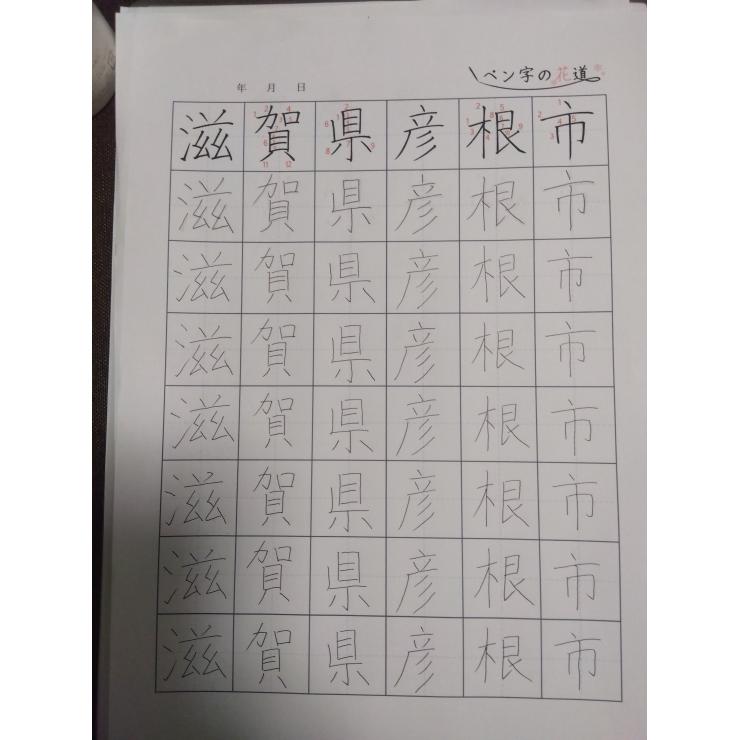 ペン字の花道
年 月 日
滋賀県彦根市
滋賀県彦根市
滋賀県彦根市
滋賀県彦根市
滋賀県彦根市
滋賀県彦根市
滋賀県彦根市
滋賀県彦根市